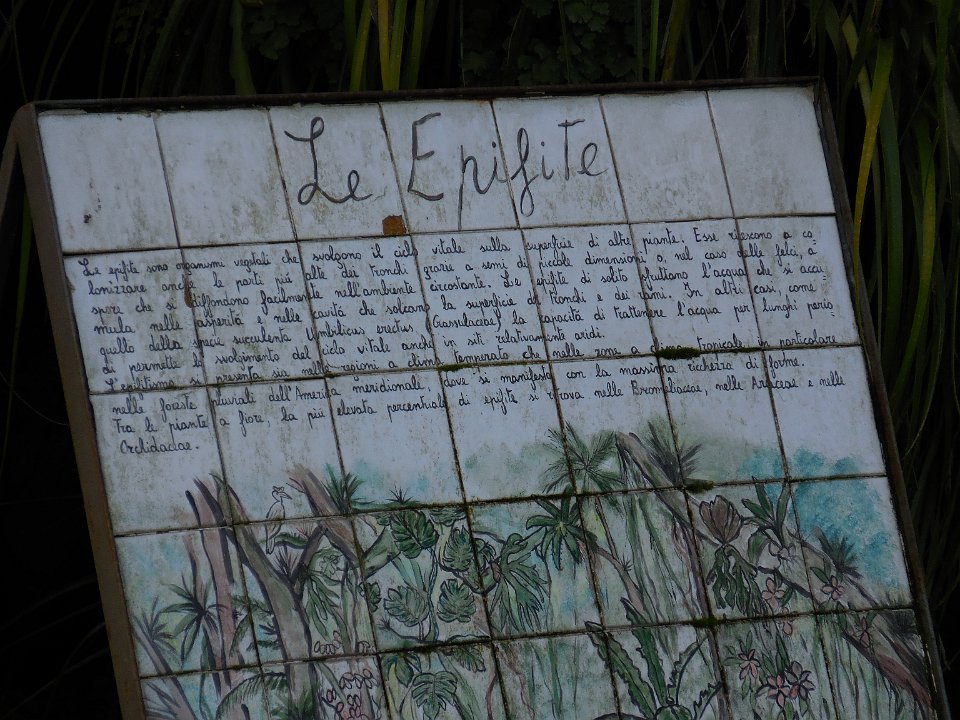 Le Epifite
Le epifite sono organismi vegetali che svolgono il ciclo vitale sulla superficie di altre piante. Esse riescono a co-
lonizzare anche le parti più alte dei tronchi grazie a semi di piccole dimensioni o, nel caso delle felci, a
spore che si diffondono facilmente nell'ambiente circostante. Le epifite di solito sfruttano l'acqua che si accu-
mula nelle asperità e nelle cavità che solcano la superficie di tronchi e dei rami. In altri casi, come
quello della specie succulenta Umbilicus erectus (Crassulaceae), la capacità di trattenere l'acqua per lunghi perio-
di permette lo svolgimento del ciclo vitale anche in siti relativamente aridi.
L'epifitismo si presenta sia nelle regioni a clima temperato che nelle zone a clima tropicale, in particolare
nelle foreste pluviali dell'America meridionale, dove si manifesta con la massima richezza di forme.
Tra le piante a fiore, la più elevata percentuale di epifite si ritrova nelle Bromeliaceae, nelle Araceae e nelle
Orchidaceae.